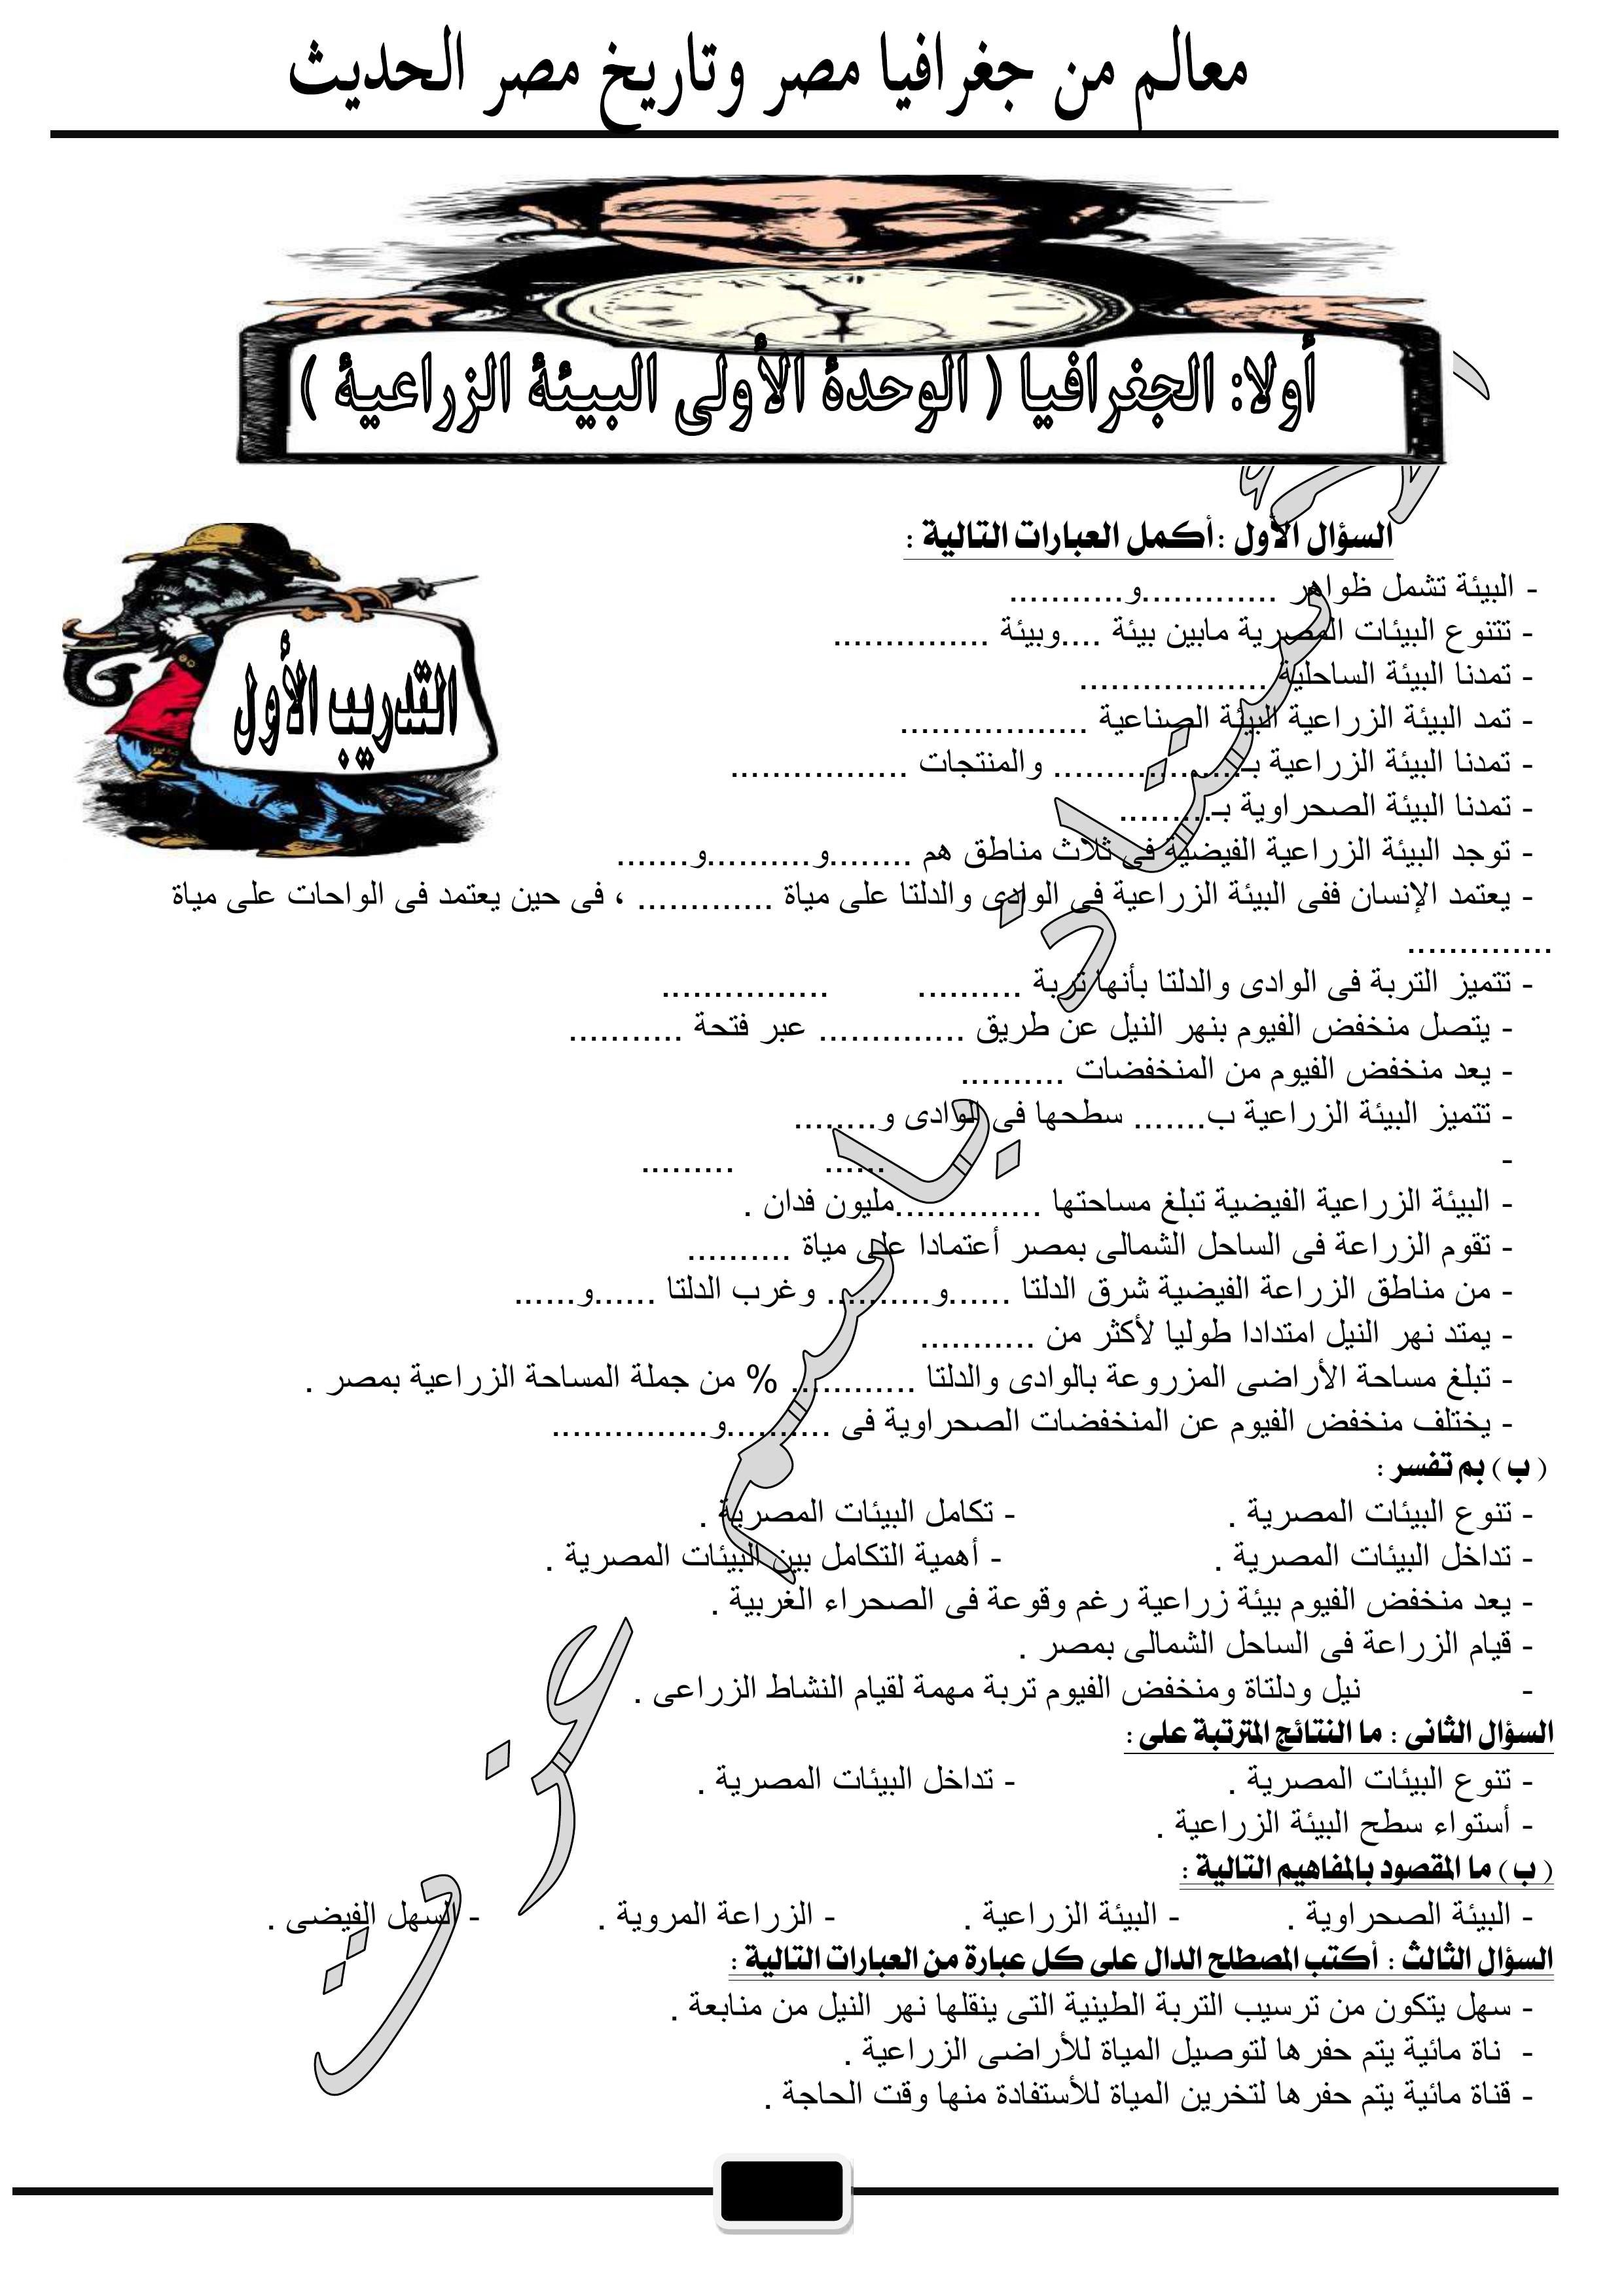 معالم من جغرافيا مصر وتاريخ مصر الحديث
أولا: الجغرافيا ( الوحدة الأولى البيئة الزراعية )
التدريب الأول
السؤال الأول :أكمل العبارات التالية :
- البيئة تشمل ظواهر .............و...........
- تتنوع البيئات المصرية مابين بيئة ....وبيئة ...............
- تمدنا البيئة الساحلية ..................
- تمد البيئة الزراعية البيئة الصناعية ..................
- تمدنا البيئة الزراعية بـ.................. والمنتجات .................
- تمدنا البيئة الصحراوية بـ.........
- توجد البيئة الزراعية الفيضية فى ثلاث مناطق هم ........و..........و.......
- يعتمد الإنسان ففى البيئة الزراعية فى الوادى والدلتا على مياة ............. ، فى حين يعتمد فى الواحات على مياة
..............
- تتميز التربة فى الوادى والدلتا بأنها تربة .......... ................
- يتصل منخفض الفيوم بنهر النيل عن طريق .............. عبر فتحة ...........
- يعد منخفض الفيوم من المنخفضات ..........
- تتميز البيئة الزراعية ب....... سطحها فى الوادى و........
- ...... .........
- البيئة الزراعية الفيضية تبلغ مساحتها ..............مليون فدان .
- تقوم الزراعة فى الساحل الشمالى بمصر أعتمادا على مياة ..........
- من مناطق الزراعة الفيضية شرق الدلتا ......و.......... وغرب الدلتا ......و......
- يمتد نهر النيل امتدادا طوليا لأكثر من ...........
- تبلغ مساحة الأراضى المزروعة بالوادى والدلتا ............ % من جملة المساحة الزراعية بمصر .
- يختلف منخفض الفيوم عن المنخفضات الصحراوية فى ..........و...............
( ب ) بم تفسر :
- تنوع البيئات المصرية . - تكامل البيئات المصرية .
- تداخل البيئات المصرية . - أهمية التكامل بين البيئات المصرية .
- يعد منخفض الفيوم بيئة زراعية رغم وقوعة فى الصحراء الغربية .
- قيام الزراعة فى الساحل الشمالى بمصر .
- نيل ودلتاة ومنخفض الفيوم تربة مهمة لقيام النشاط الزراعى .
السؤال الثانى : ما النتائج المترتبة على :
- تنوع البيئات المصرية . - تداخل البيئات المصرية .
- أستواء سطح البيئة الزراعية .
( ب ) ما المقصود بالمفاهيم التالية :
- البيئة الصحراوية . - البيئة الزراعية . - الزراعة المروية . - السهل الفيضى .
السؤال الثالث : أكتب المصطلح الدال على كل عبارة من العبارات التالية :
- سهل يتكون من ترسيب التربة الطينية التى ينقلها نهر النيل من منابعة .
- ناة مائية يتم حفرها لتوصيل المياة للأراضى الزراعية .
- قناة مائية يتم حفرها لتخرين المياة للأستفادة منها وقت الحاجة .